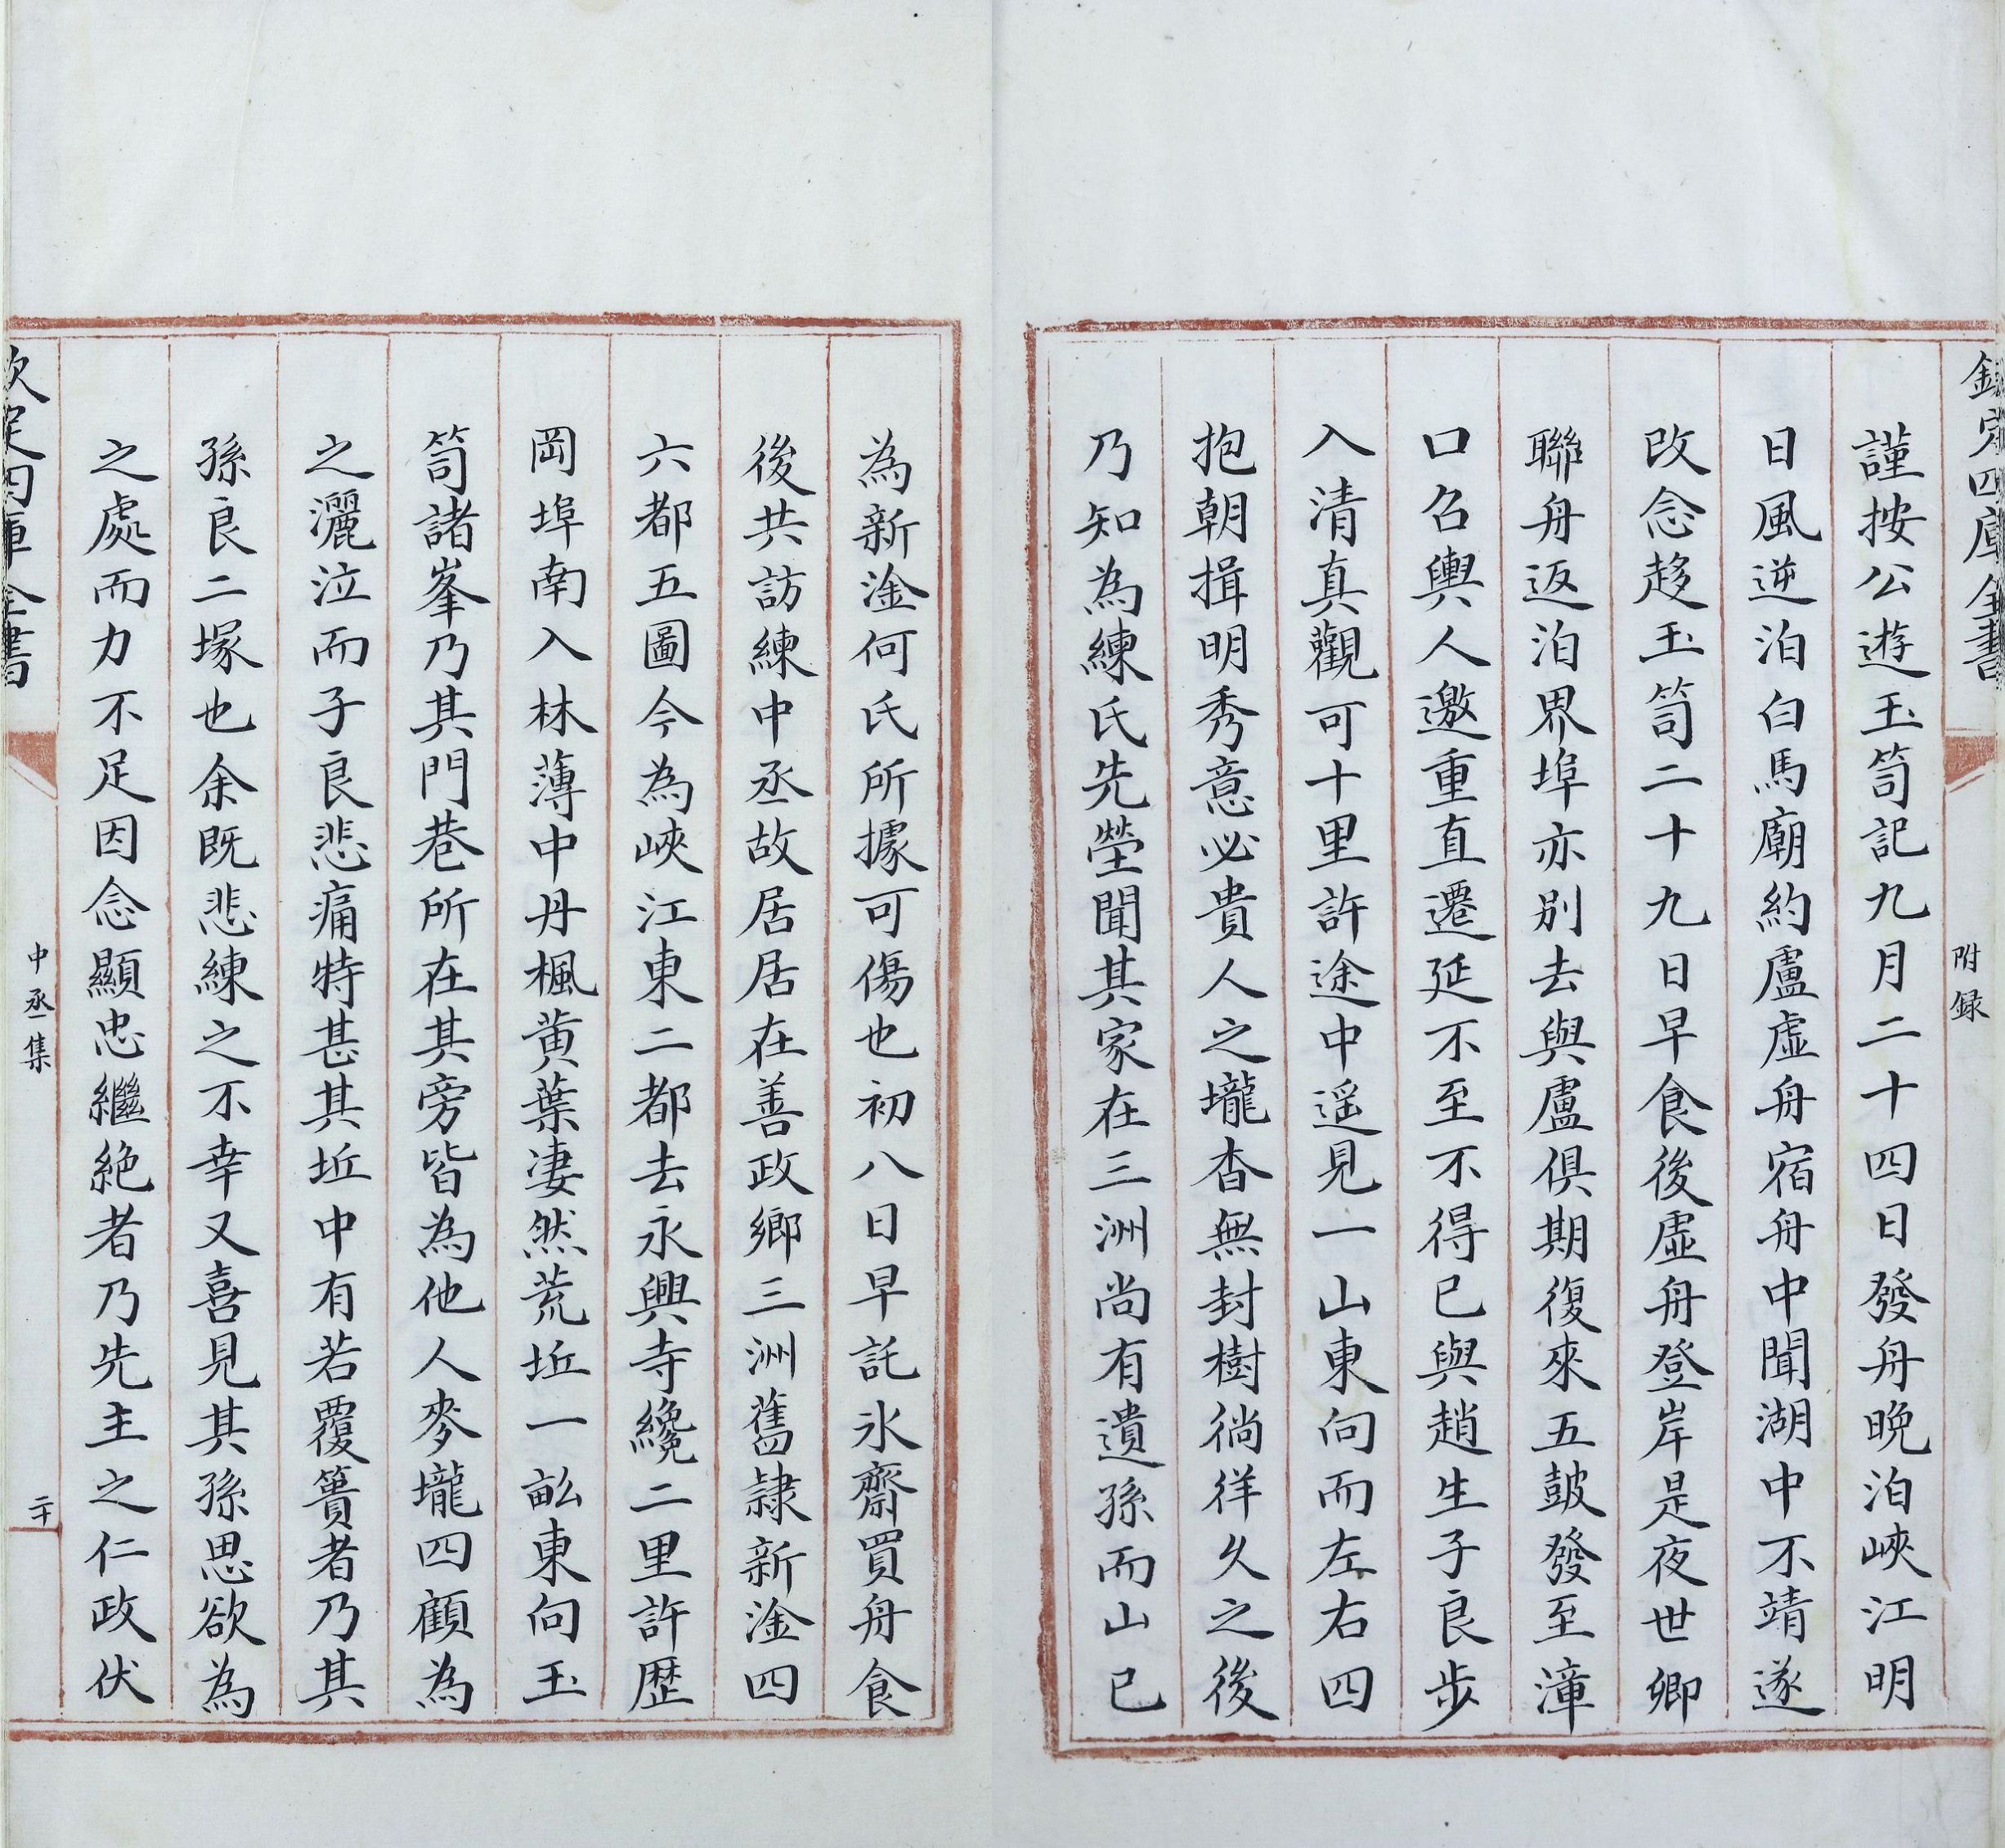 欽定四庫全書
附録
謹按公遊玉笥記九月二十四日發舟晩泊峽江明
日風逆泊白馬廟約盧虛舟宿舟中聞湖中不靖遂
改念趍玉笥二十九日早食後虛舟登岸是夜世卿
聯舟返泊界埠亦別去與盧俱期復來五鼓發至漳
口召輿人邀重直遷延不至不得已與趙生子良步
入清真觀可十里許途中遥見一山東向而左右四
抱朝揖明秀意必貴人之壠杳無封樹徜徉久之後
乃知為練氏先塋聞其家在三洲尚有遺孫而山已
為新淦何氏所據可傷也初八日早託氷齋買舟食
後共訪練中丞故居居在善政鄉三洲舊隷新淦四
六都五圖今為峽江東二都去永興寺纔二里許歴
岡埠南入林薄中丹楓黄葉淒然荒坵一畝東向玉
笥諸峯乃其門巷所在其旁皆為他人麥壠四顧為
之灑泣而子良悲痛特甚其坵中有若覆簣者乃其
孫良二塚也余既悲練之不幸又喜見其孫思欲為
之處而力不足因念顯忠繼絶者乃先主之仁政伏
欽定四庫全書
中丞集
二十